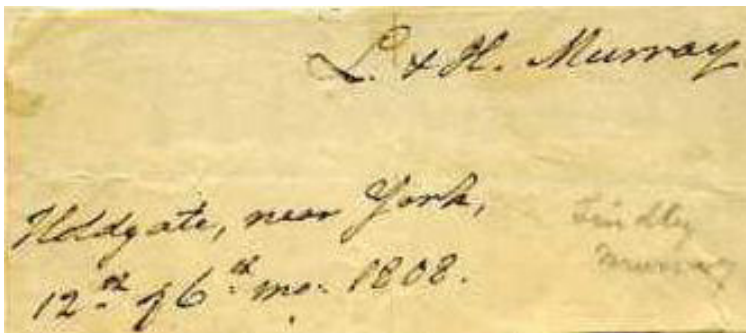 L. & H. Murray
Holdgate, near York,
12th of 6th mo. 1808.
Lindley
Murray